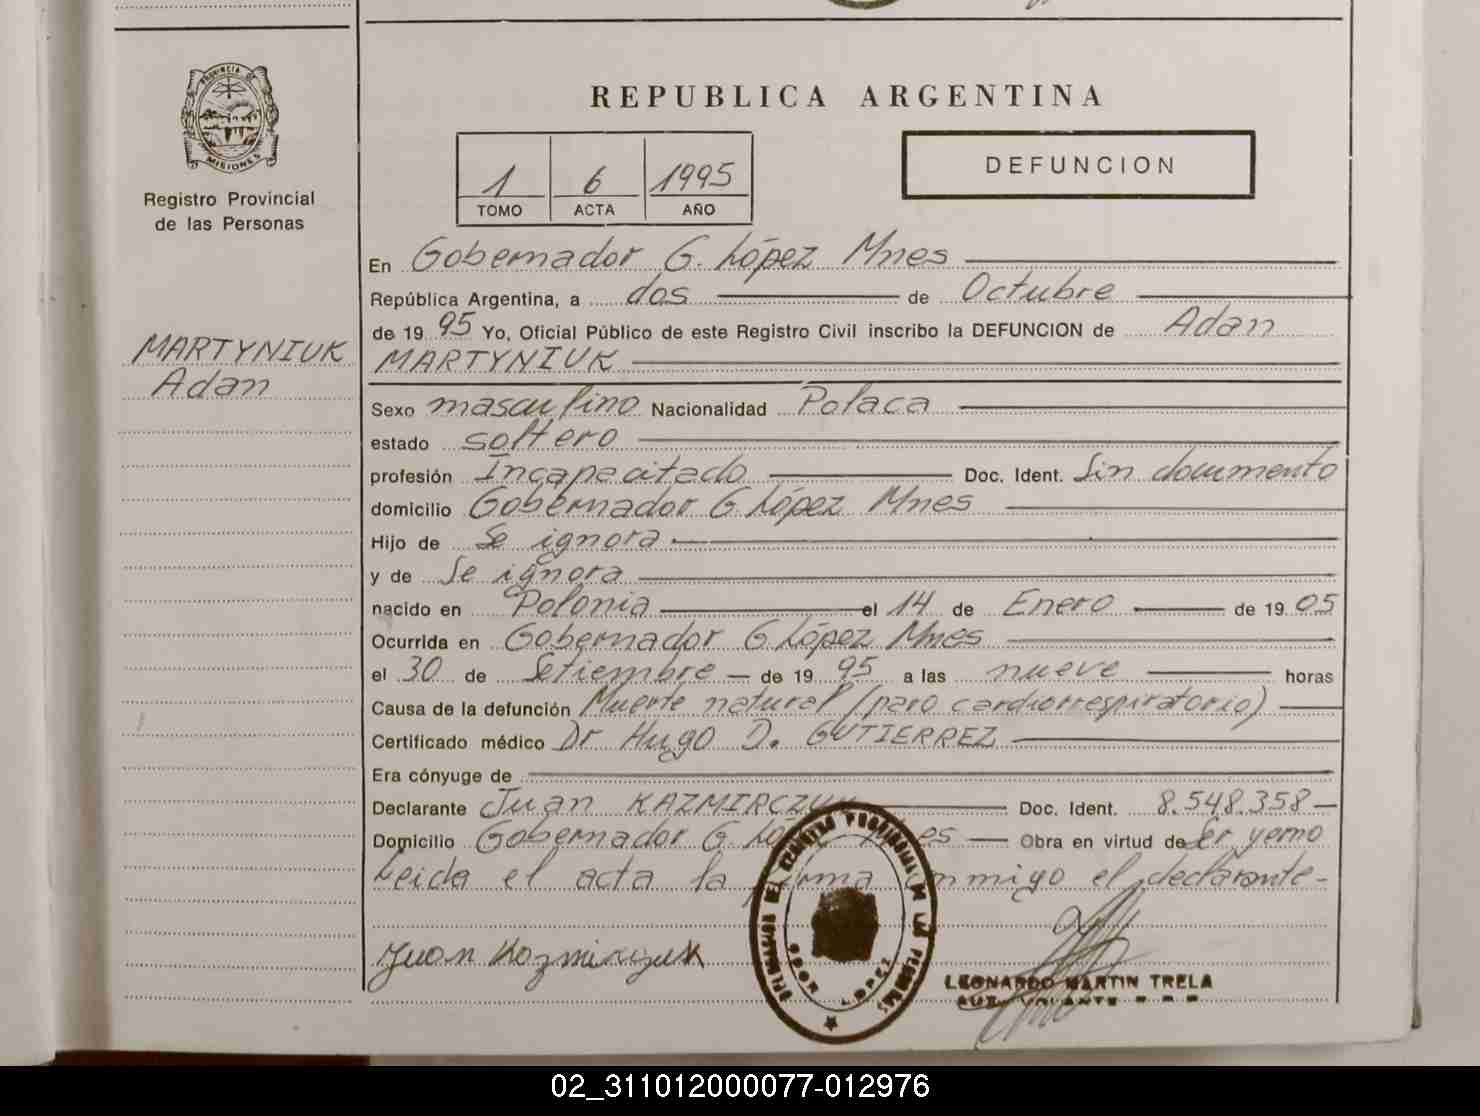 PROVINCIA DE
MISIONES
Registro Provincial
de las Personas
MARTYNIUK
Adan
REPUBLICA ARGENTINA
1 6 1995
TOMO ACTA AÑO
DEFUNCION
En Gobernador G. López Mnes
República Argentina, a dos de Octubre
de 19 95 Yo, Oficial Público de este Registro Civil inscribo la DEFUNCION de Adan
MARTYNIUK
Sexo masculino Nacionalidad Polaca
estado soltero
profesión Incapacitado Doc. Ident. Sin documento
domicilio Gobernador G. López Mnes
Hijo de Se ignora
y de Se ignora
nacido en Polonia el 14 de Enero de 19 05
Ocurrida en Gobernador G. López Mnes
el 30 de Setiembre de 19 95 a las nueve horas
Causa de la defunción Muerte natural (paro cardiorrespiratorio)
Certificado médico Dr Hugo D. GUTIERREZ
Era cónyuge de
Declarante Juan KAZMIRCZUK Doc. Ident. 8.548.358
Domicilio Gobernador G. López Mnes Obra en virtud de Ser yerno
Leida el acta la firma conmigo el declarante-
Juan Kozmirczuk
DELEGACION DEL REGISTRO PROVINCIAL DE LAS PERSONAS
GDOR LOPEZ
LEONARDO MARTIN TRELA
AUX. VOLANTE R.P.P.
02_311012000077-012976